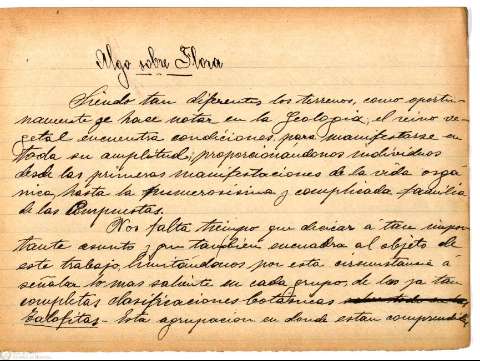 Algo sobre Flora
Siendo tan diferentes los terrenos, como oportu-
namente se hace notar en la Geologia, el reino ve-
getal encuentra condiciones para manifestarse en
toda su amplitud, proporcionándonos individuos
desde las primeras manifestaciones de la vida orgá-
nica, hasta la numerosísima y complicada familia
de las Compuestas.
Nos falta tiempo que dedicar á tan impor-
tante asunto y que tambien encuadra al objeto de
este trabajo, limitándonos por esta circunstancia á
señalar lo mas saliente en cada grupo, de las ya tan
completas clasificaciones botánicas
Talofitas - Esta agrupacion en donde estan comprendidos